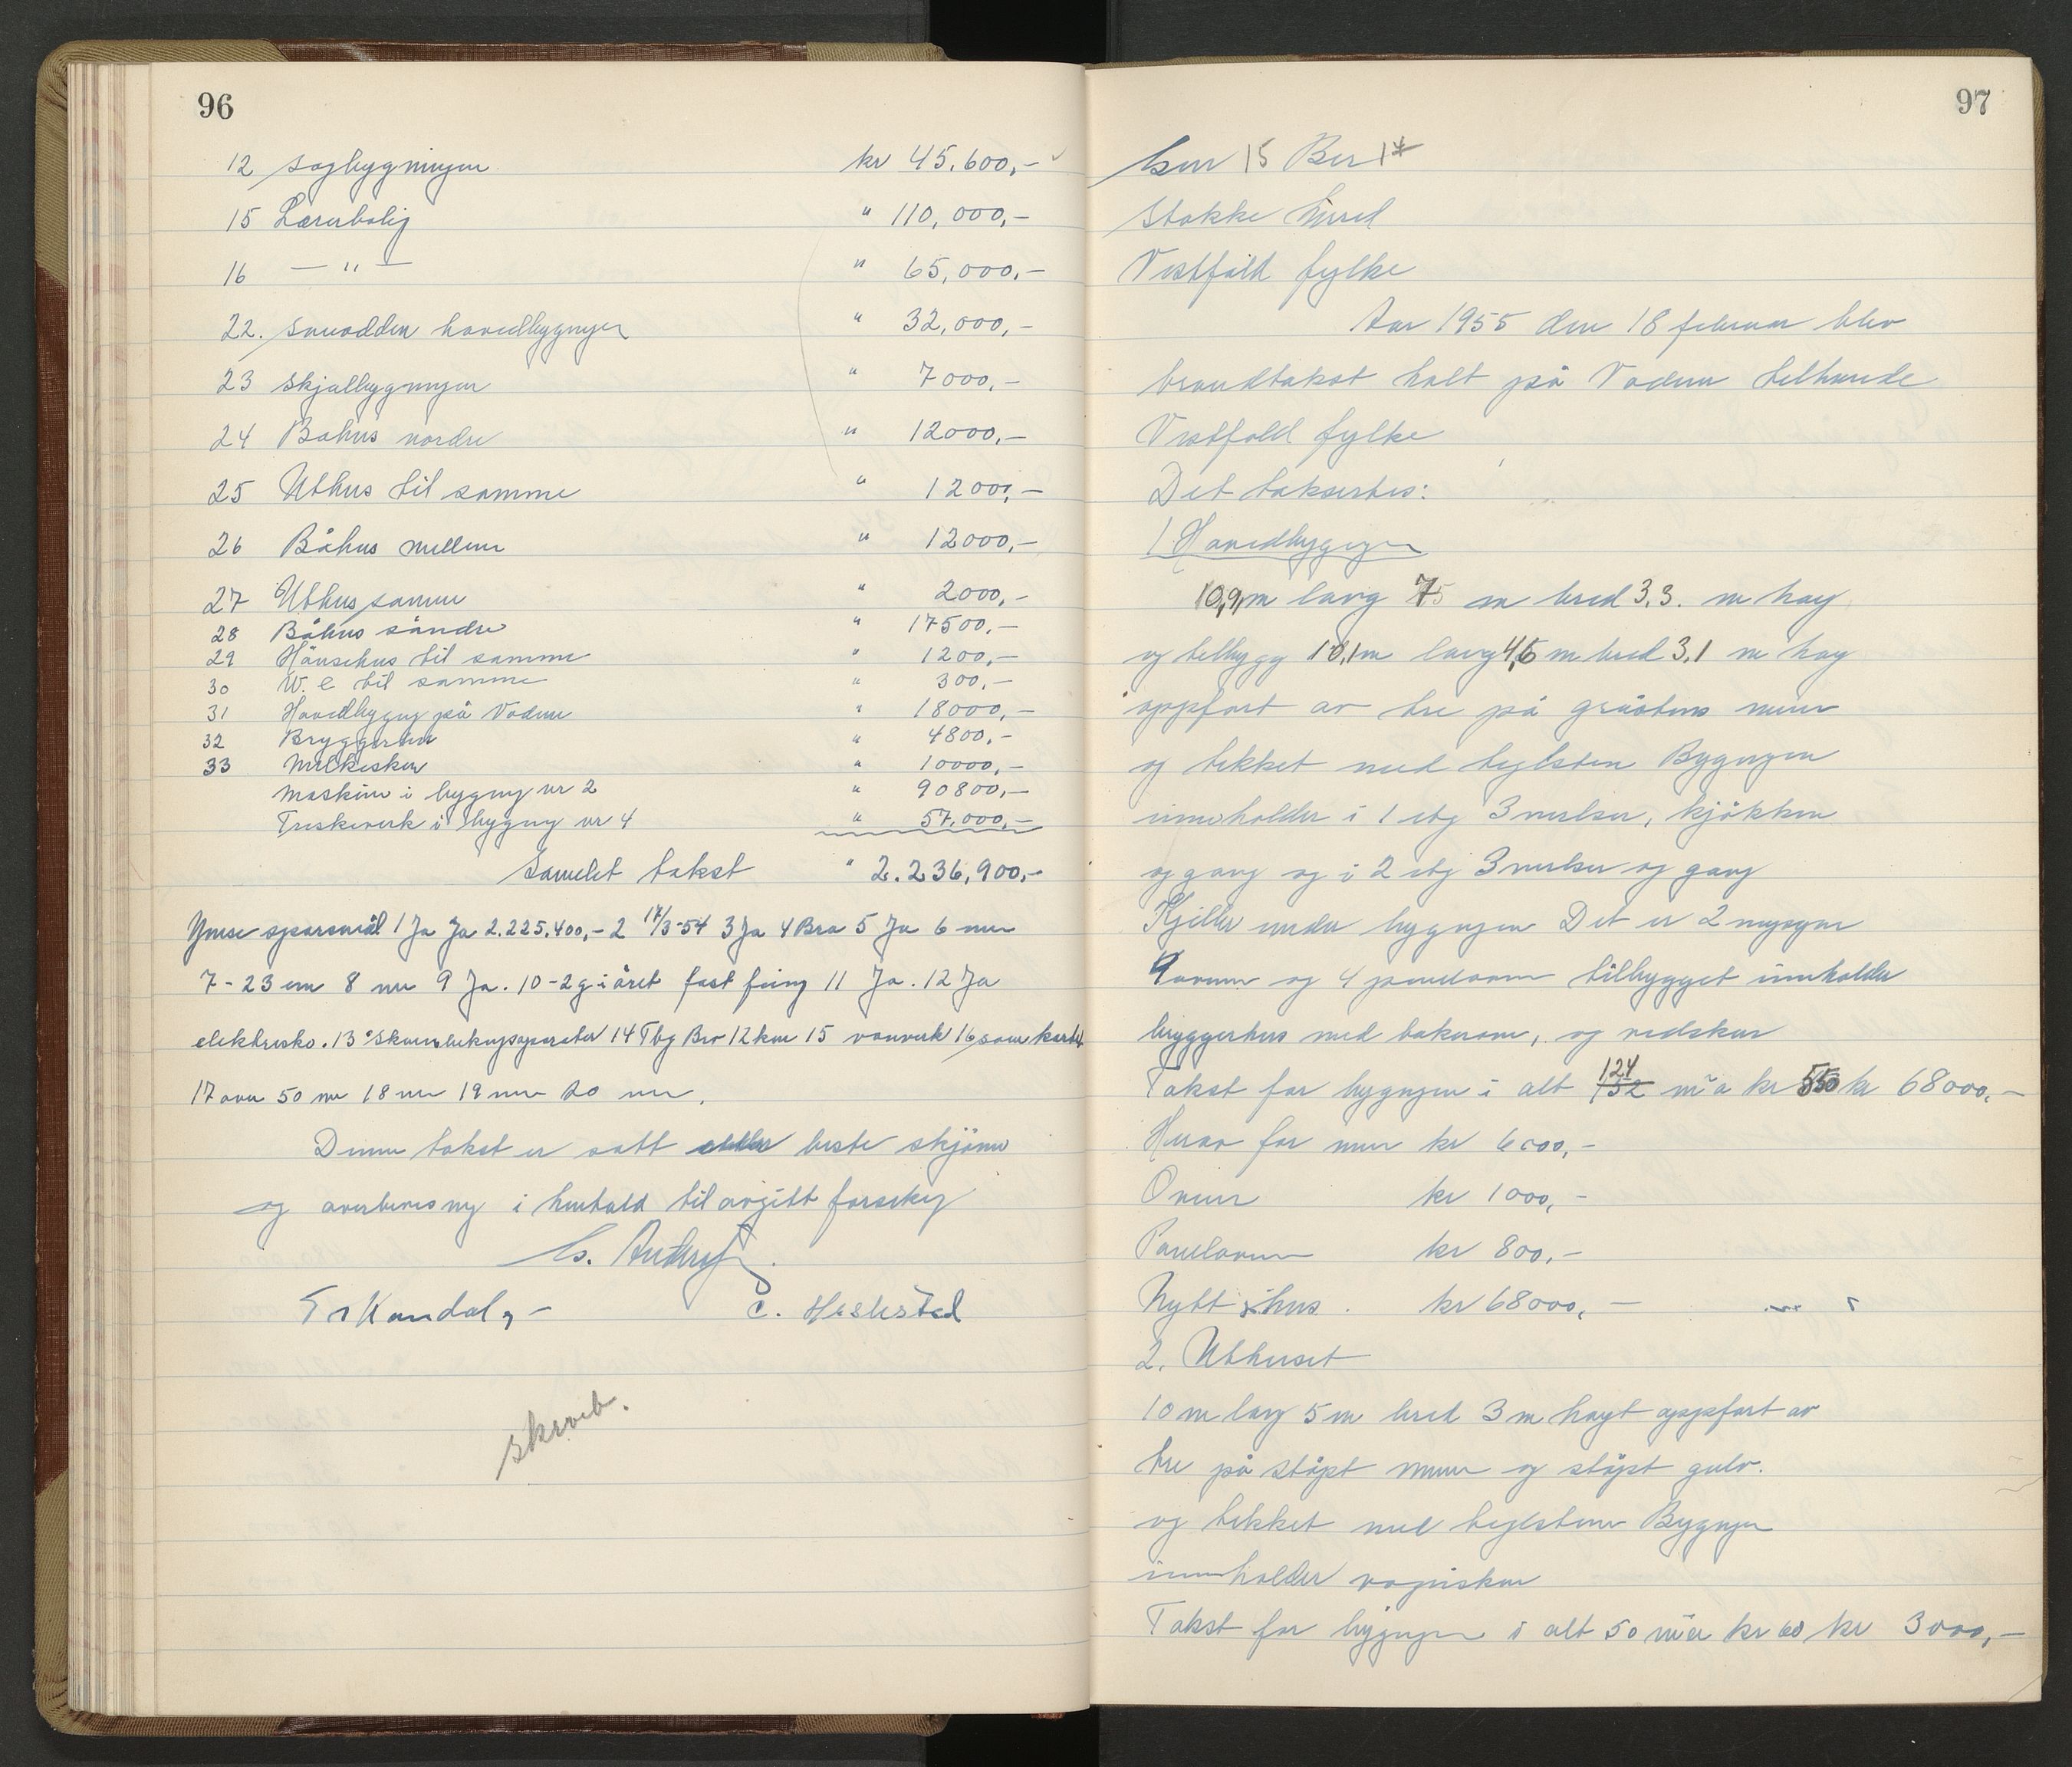 96
12 Sagbygningen kr 45.600,-
15 Lærerbolig " 110,000,-
16 — " — " 65,000,-
22. Snuodden hovedbygnyen " 32,000,-
23 Skjulbygnngen " 7000,-
24 Bahus nordre " 12000,-
25 Uthus til samme " 1200,-
26 Båhus mellem " 12000,-
27 Uthus samme " 2000,-
28 Båhus söndre " 17500,-
29 Hönsehus til samme " 1200,-
30 W.C til samme " 300,-
31 Hovedbygng på Vadum " 18000,-
32 Bryggerhus " 4800,-
33 " 10000,-
Maskine i bygng nr 2 " 90800,-
Treskeverk i bygng nr 4 " 57,000,-
Samlet takst " 2.236,900,-
Ymse sporsmål 1 Ja Ja 2.225.400,- 2 17/3-54 3 Ja 4 Bra 5 Ja 6 nei
7-23 em 8 nei 9 Ja. 10-2 g i året fast feiing 11 Ja. 12 Ja
elektrisk. 13 14 Tbg Brv 12 km 15 vannverk 16 som kartet
17 over 50 m 18 nei 19 nei 20 nei.
Denne takst er satt etter beste skjönn
og overbevisng i henhold til avgitt forsikrg
E. Hesbsted
skrevet.
97
Gnr 15 Bnr 14
Stokke herred
Vestfold fylke
Aar 1955 den 18 februar blev
brandtakst holt på Vadum telhørende
Vestfold fylke
Det taksertes:
1 Hovedbygngen
10,9 m lang 75 m bred 3,3. m høy
og telbygg 10,1 m lang 4,6 m bred 3,1 m høy
oppført av tre på gråstens mur
og tekket med teglsten Bygngen
inneholder i 1 etg 3 verlser, kjökken
og gang og i 2 etg 3 verlser og gang
Kjeller under bygngen Det er 2
4 ovner og 4 panelovner tilbygget innholder
bryggerhus med bakerovn, og vedskur
Takst for bygngen i alt 124 152 m² a kr 550 kr 68000,-
Herav for mur kr 6000,-
Ovner kr 1000,-
Panelovner kr 800,-
Nytt hus. kr 68000,-
2. Uthuset
10 m lang 5 m bred 3 m høyt oppført av
tre på støpt mur og støpt gulv.
og tekket med teglstener Bygngen
innholder vognskur
Takst for bygngen i alt 50 m² a kr 60 kr 3000,-